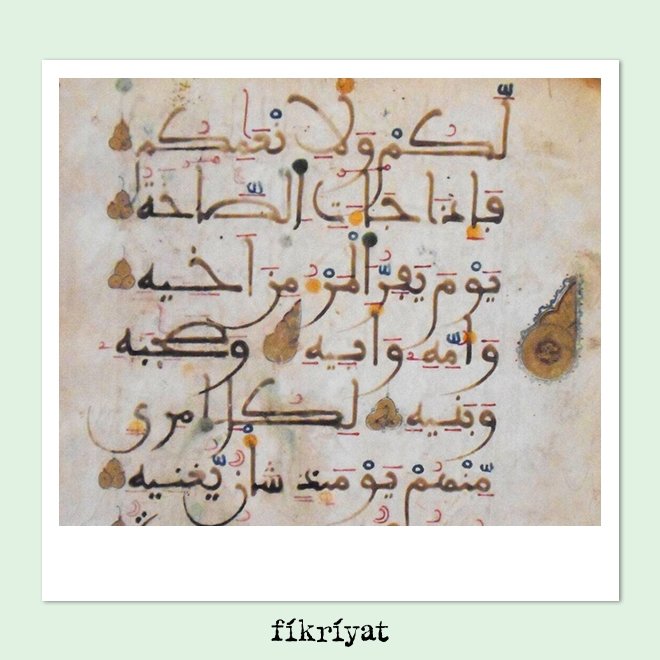 لَّكُمْ وَلِأَنْعَٰمِكُمْ
فَإِذَا جَآءَتِ ٱلصَّآخَّةُ
يَوْمَ يَفِرُّ ٱلْمَرْءُ مِنْ أَخِيهِ
وَأُمِّهِۦ وَأَبِيهِ وَصَٰحِبَتِهِۦ
وَبَنِيهِ لِكُلِّ ٱمْرِئٍ
مِّنْهُمْ يَوْمَئِذٍ شَأْنٌ يُغْنِيهِ
fikriyat